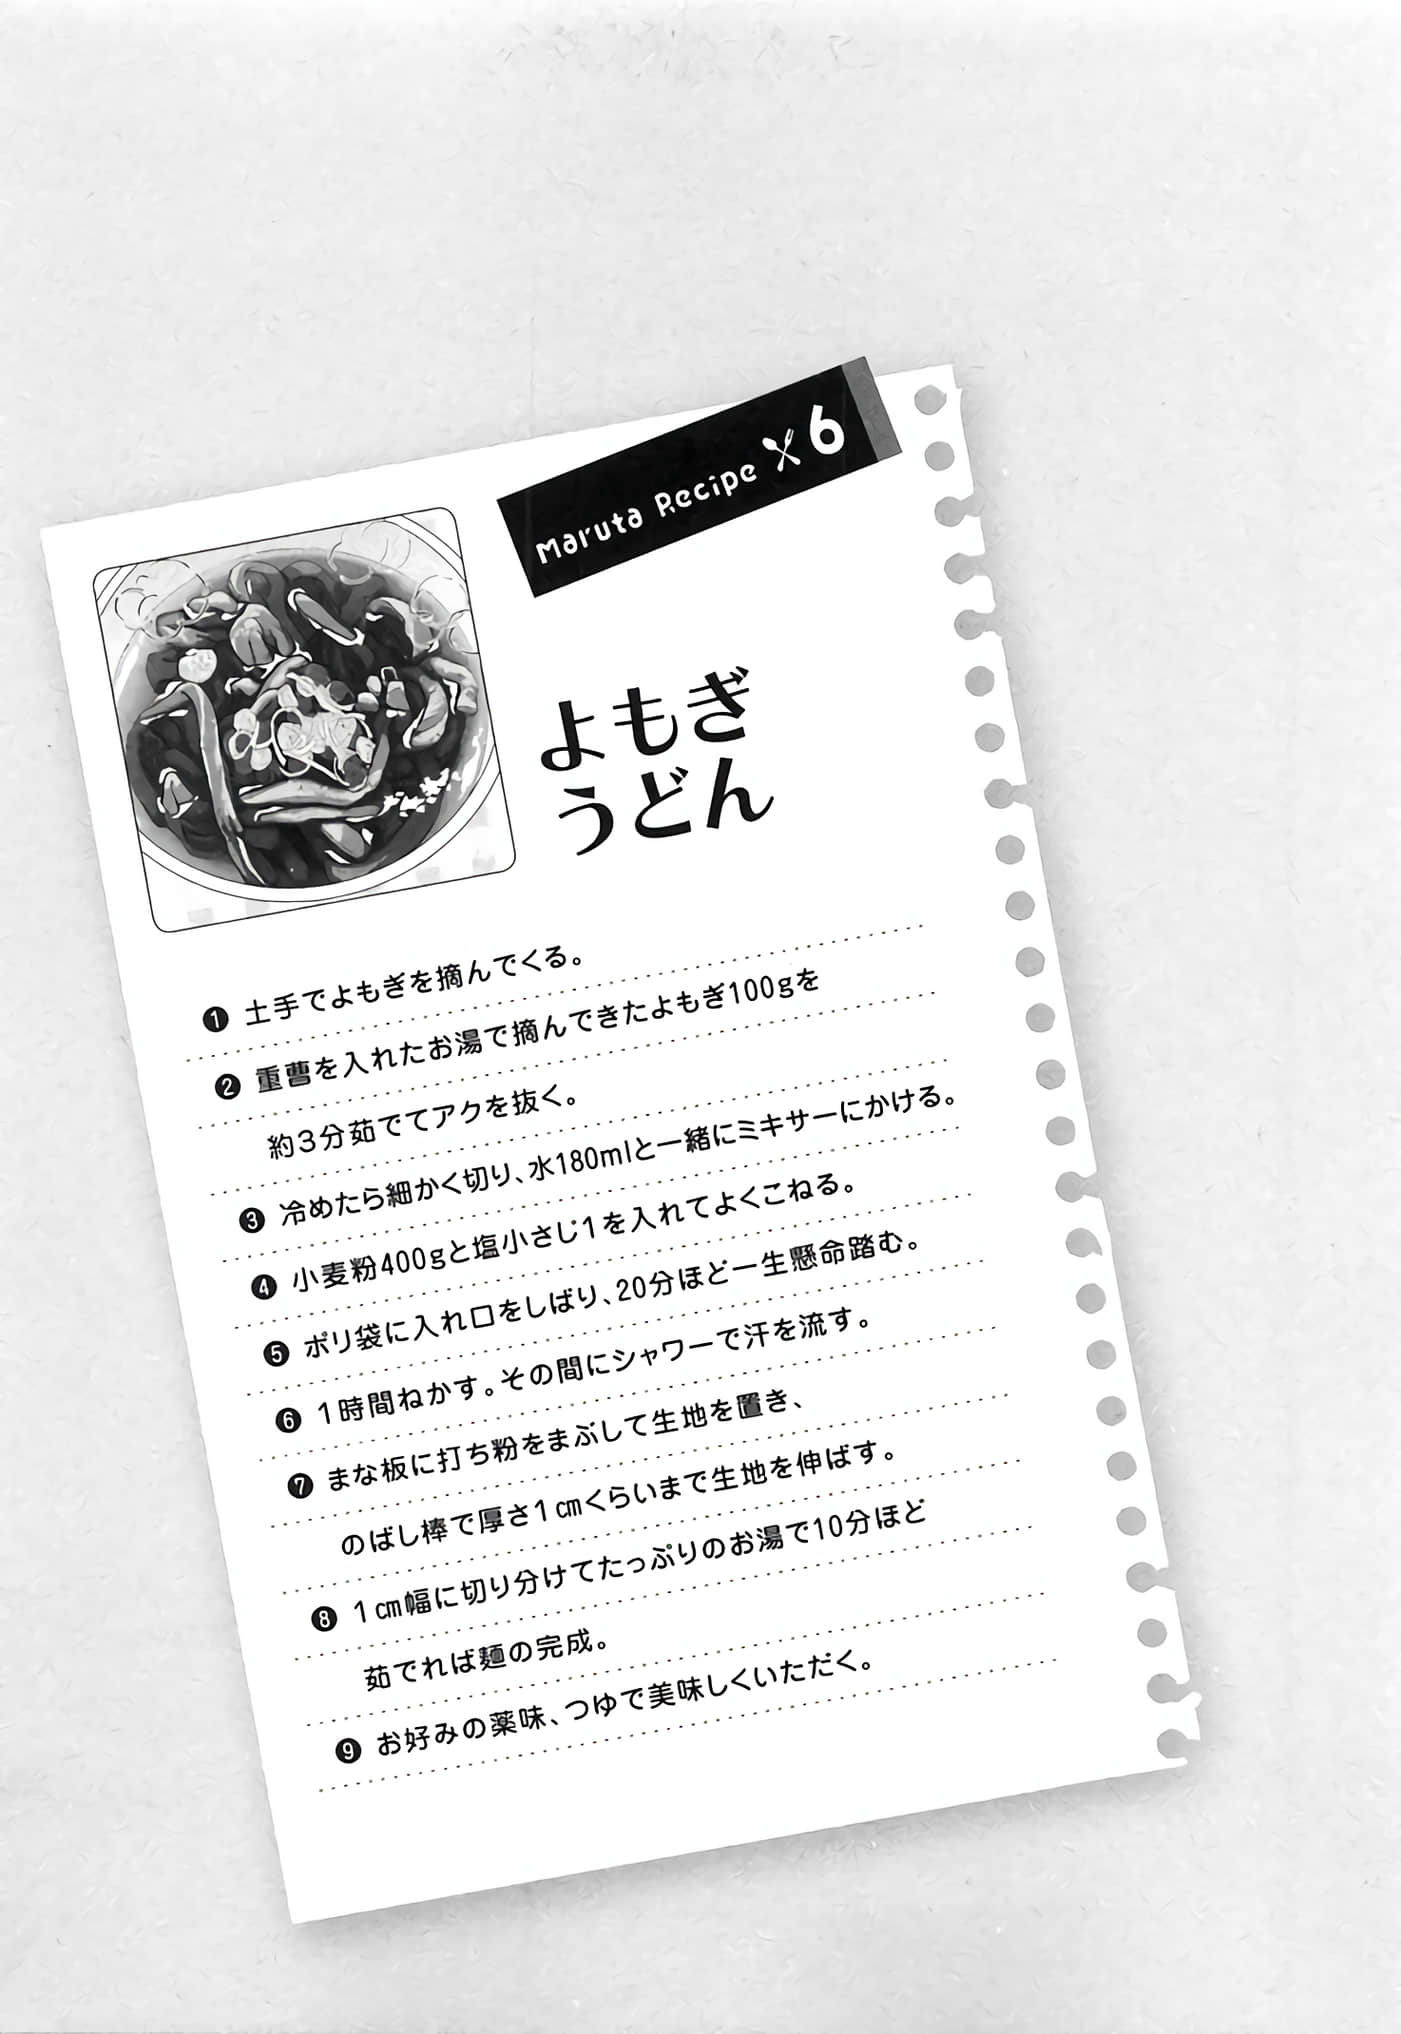 Maruta Recipe 6
よもぎ
うどん
❶ 土手でよもぎを摘んでくる。
❷ 重曹を入れたお湯で摘んできたよもぎ100gを
約3分茹でてアクを抜く。
❸ 冷めたら細かく切り、水180mlと一緒にミキサーにかける。
❹ 小麦粉400gと塩小さじ1を入れてよくこねる。
❺ ポリ袋に入れ口をしばり、20分ほど一生懸命踏む。
❻ 1時間ねかす。その間にシャワーで汗を流す。
❼ まな板に打ち粉をまぶして生地を置き、
のばし棒で厚さ1㎝くらいまで生地を伸ばす。
❽ 1㎝幅に切り分けてたっぷりのお湯で10分ほど
茹でれば麺の完成。
❾ お好みの薬味、つゆで美味しくいただく。